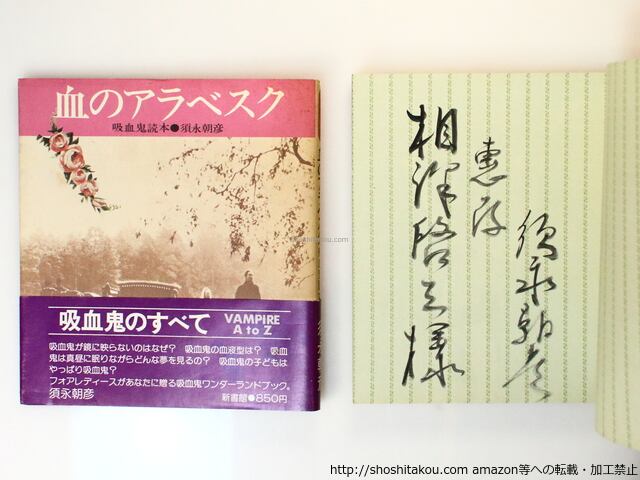 血のアラベスク
吸血鬼読本●須永朝彦
吸血鬼のすべて
VAMPIRE
A to Z
吸血鬼が鏡に映らないのはなぜ? 吸血鬼の血液型は? 吸血
鬼は真昼に眠りながらどんな夢を見るの? 吸血鬼の子どもは
やっぱり吸血鬼?
フォアレディースがあなたに贈る吸血鬼ワンダーランドブック。
須永朝彦
新書館●850円
相澤啓三様
恵存
須永朝彦
shoshitakou.com
http://shoshitakou.com amazon等への転載・加工禁止